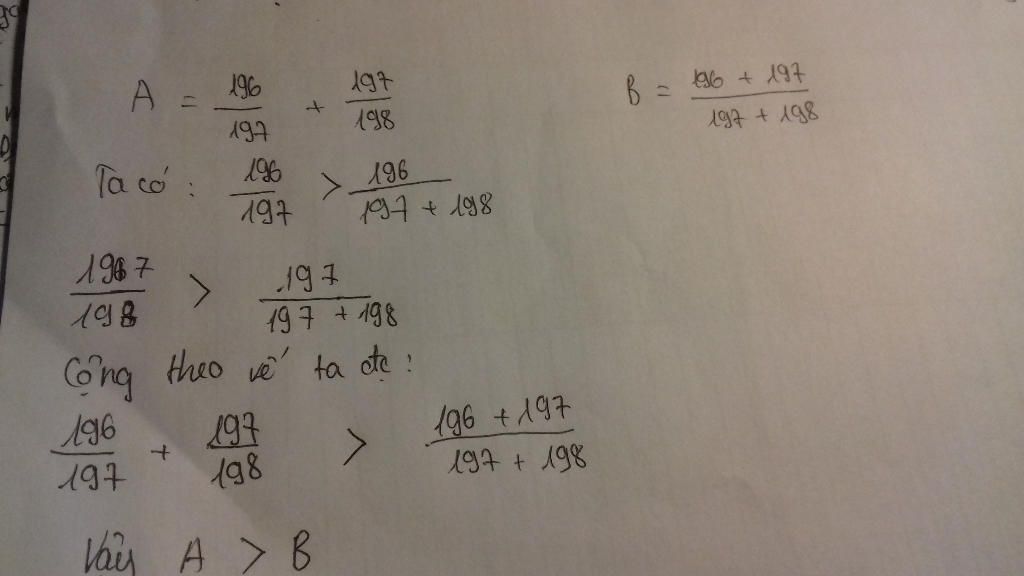 A = 196/197 + 197/198
B = 196 + 197 / 197 + 198
Ta có : 196/197 > 196 / 197 + 198
197/198 > 197 / 197 + 198
Cộng theo vế ta đc :
196/197 + 197/198 > 196 + 197 / 197 + 198
Vậy A > B